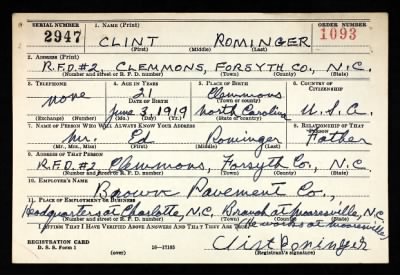 SERIAL NUMBER
1. NAME (Print)
ORDER NUMBER
2947
CLINT ROMINGER
1093
(First) (Middle) (Last)
2. ADDRESS (Print)
R.F.D.#2, CLEMMONS, FORSYTH CO., N.C.
(Number and street or R. F. D. number) (Town) (County) (State)
3. TELEPHONE
4. AGE IN YEARS
5. PLACE OF BIRTH
6. COUNTRY OF CITIZENSHIP
none
21
Clemmons
DATE OF BIRTH
(Town or county)
June 3, 1919
North Carolina
U.S.A.
(Exchange) (Number)
(Mo.) (Day) (Yr.)
(State or country)
7. NAME OF PERSON WHO WILL ALWAYS KNOW YOUR ADDRESS
8. RELATIONSHIP OF THAT PERSON
Mr. Ed Rominger Father
(Mr., Mrs., Miss) (First) (Middle) (Last)
9. ADDRESS OF THAT PERSON
R.F.D.#2 Clemmons, Forsyth Co., N.C
(Number and street or R. F. D. number) (Town) (County) (State)
10. EMPLOYER'S NAME
Brown Pavement Co.,
11. PLACE OF EMPLOYMENT OR BUSINESS
Headquarters at Charlotte, N.C. Branch at Mooresville, N.C.
He works at Mooresville
I AFFIRM THAT I HAVE VERIFIED ABOVE ANSWERS AND THAT THEY ARE TRUE.
REGISTRATION CARD
D. S. S. Form 1
(over)
16—17105
Clint Rominger
(Registrant's signature)